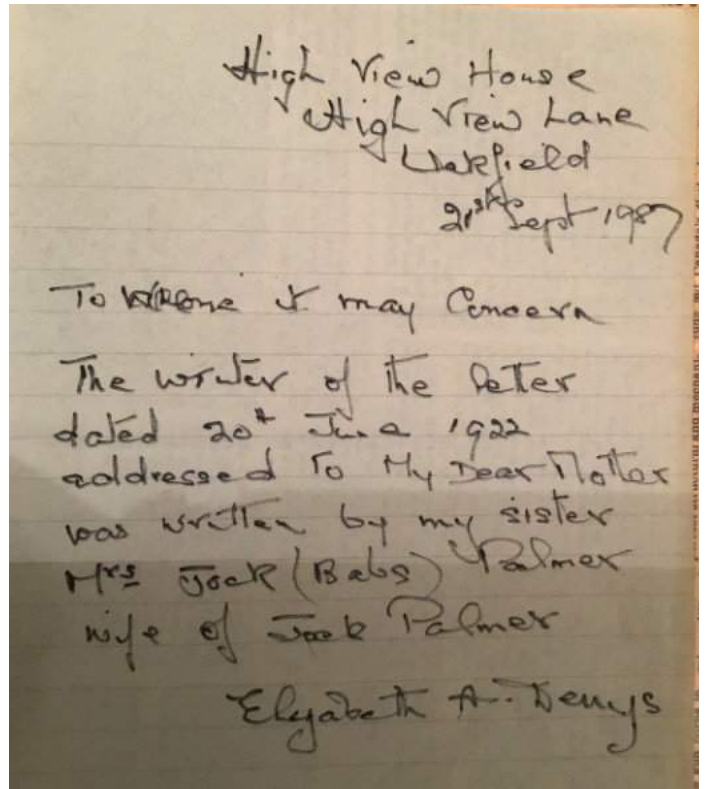 High View House
High View Lane
Wakefield
21st Sept 1987
To Whome it may Concern
The writer of the letter
dated 20th June 1922
addressed To My Dear Mother
was written by my sister
Mrs Jock (Babs) Palmer
wife of Jock Palmer
Elyabeth A. Denys